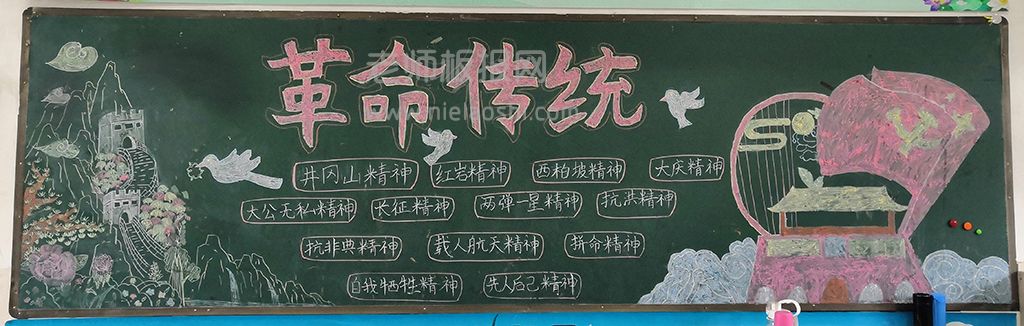 革命传统
老师板报网
www.mielaoshi.com
井冈山精神 红岩精神 西柏坡精神 大庆精神
大公无私精神 长征精神 两弹一星精神 抗洪精神
抗非典精神 载人航天精神 拼命精神
自我牺牲精神 先人后己精神